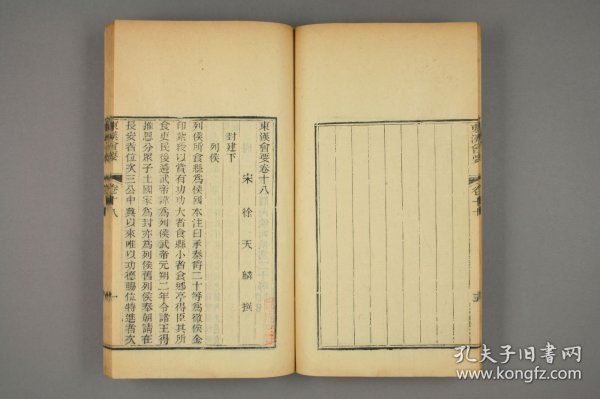 東漢會要
卷十七
東漢會要卷十八
宋 徐天麟 撰
封建下
列侯
列侯所食縣爲侯國本注曰承秦爵二十等爲徹侯金
印紫綬以賞有功功大者食縣小者食鄉亭得臣其所
食吏民後避武帝諱爲列侯武帝元朔二年令諸王得
推恩分眾子土國家爲封亦爲列侯舊列侯奉朝請在
長安者位次三公中興以來唯以功德賜位特進者次
東漢會要
卷十八
一
孔夫子旧书网
www.kongfz.com